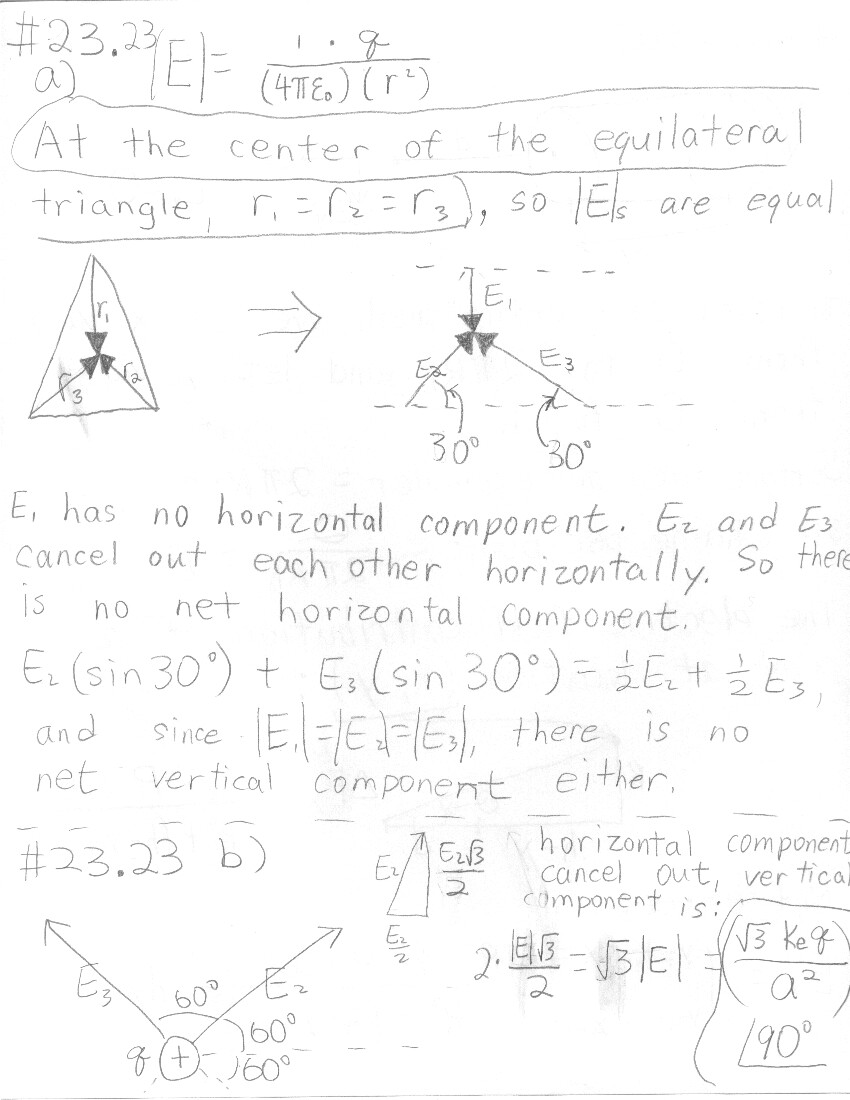 #23.23
a) |E| = 1 · q / (4πε₀)(r²)
At the center of the equilateral
triangle, r₁ = r₂ = r₃), so |E|s are equal
r₁
r₂
r₃
⇒
E₁
E₂
E₃
30°
30°
E₁ has no horizontal component. E₂ and E₃
cancel out each other horizontally. So there
is no net horizontal component.
E₂(sin 30°) + E₃(sin 30°) = ½E₂ + ½E₃,
and since |E₁|=|E₂|=|E₃|, there is no
net vertical component either.
#23.23 b)
E₂
E₂√3/2
E₂/2
horizontal component
cancel out, vertical
component is:
2·|E|√3/2 = √3|E| = (√3 keq / a²)
∠90°
E₃
E₂
60°
60°
60°
q +